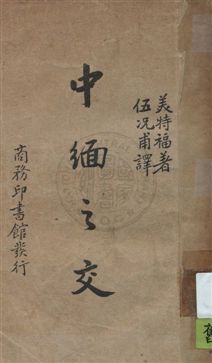 美特福著
伍况甫譯
中緬之交
商務印書館發行
舊